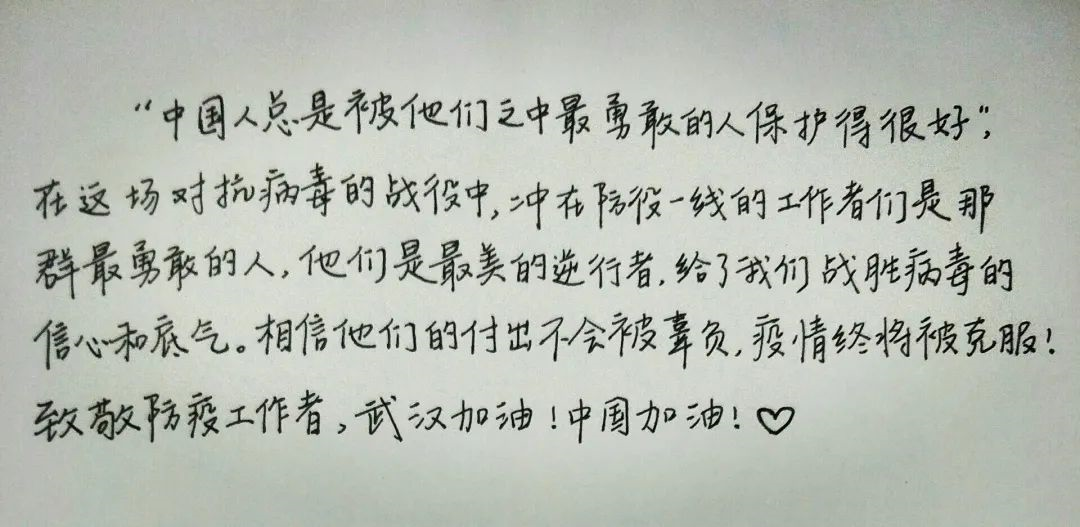 “中国人总是被他们之中最勇敢的人保护得很好”,
在这场对抗病毒的战役中,冲在防役一线的工作者们是那
群最勇敢的人,他们是最美的逆行者,给了我们战胜病毒的
信心和底气。相信他们的付出不会被辜负,疫情终将被克服!
致敬防疫工作者,武汉加油!中国加油!♡